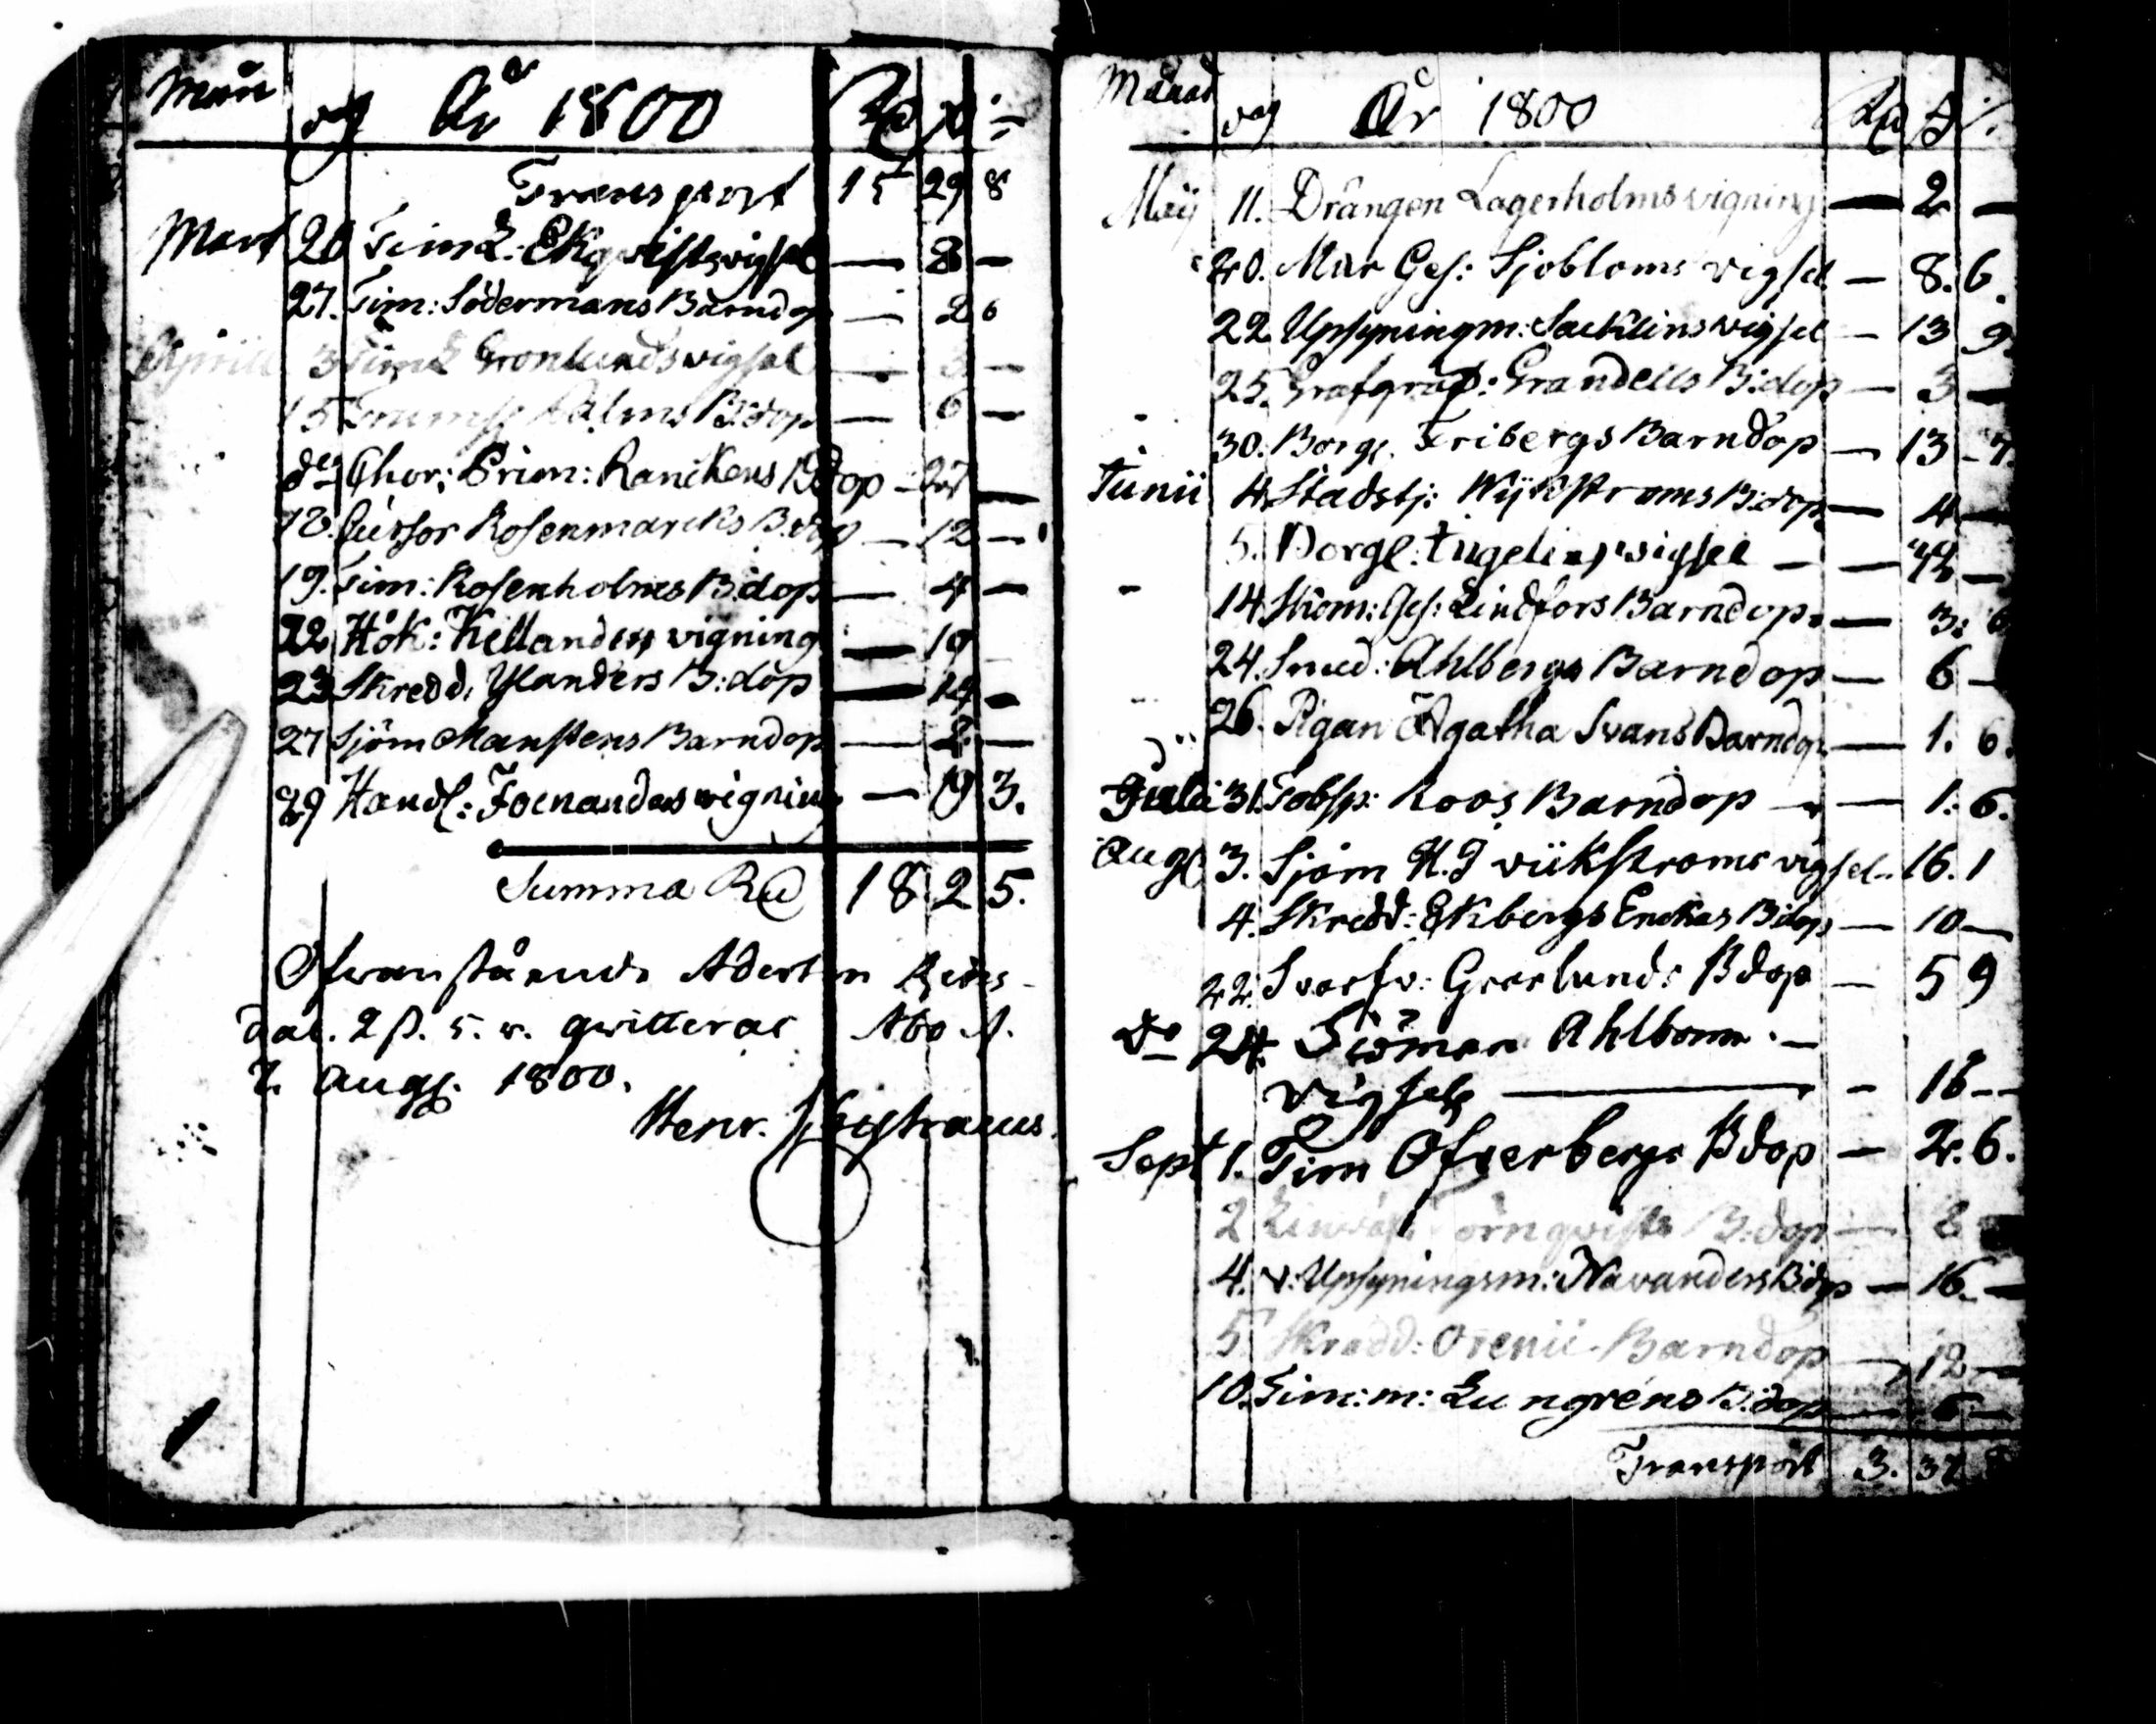 Mån dag År 1800 Rd ß
Transport 15 29 8
Mart 20 Timk. Ekqvists vigsel — 8 —
27. Tim: Södermans Barndop — 2 6
Aprill 3 Timk Gronlunds vigsel — 3 —
15 Palms B:dop — 6 —
do Chor: Prim: Ranckens Bdop — 27 —
18. Cursor Rosenmarcks B:dop — 12 —
19. Tim: Rosenholms B:dop — 4 —
22 Hök: Kellanders vigning — 10
23 Skredd. Ylanders B:döp — 14 —
27 Sjöm Manstens Barndop — 2 —
29 Handl: Foenanders vigning — 19 3.
Summa Rd 18 2 5.
Ofvanstående Aderton Riks-
dal. 2 ß. 5. r. qvitteras Åbo d.
7. Aug. 1800.
Henr.
Månad dag År 1800 Rd ß
Maij 11. Drängen Lagerholms vigning — 2 —
20. Mur Ges: Sjobloms vigsel — 8. 6.
22 Upsyningm: Sacklins vigsel — 13 9.
25. Grandells B:dop — 3 —
30. Borgl. Fribergs Barndop — 13 — 7.
Junii 4. Stadstj: Wijkstroms B:dop — 4 —
5. Borgl: vigsel — 42 —
14 Skom: Ges: Lindfors Barndop — 3: 6
24. Smed: Ahlbergs Barndop — 6 —
26. Pigan Agatha Svans Barndop — 1. 6.
Julii 31. Tobsp: Roos Barndop — 1. 6.
Augs 3. Sjöm H. J wikstroms vigsel. 16. 1
4. Skredd: Ekbergs Enckas B:dop — 10 —
22. Svarfv: Grorlunds Bdop — 5 9
do 24. Siöman Ahlbom —
vigsel — 16 —
Sept 1. Tim Ofverbergs Bdop — 2. 6.
2 örnqvists B:dop — 8
4. v: Upsyningsm: Navanders B:dop — 16. —
5. Skrædd: Orenii Barndop — 12 —
10. Tim:m: Lungréns B:dop — 6 —
Transport 3. 37